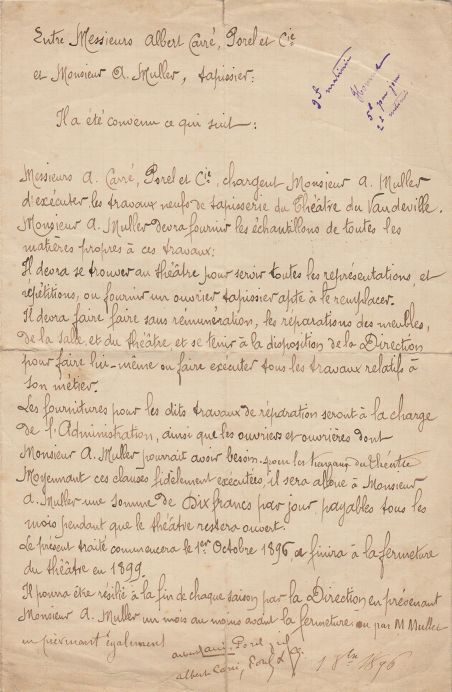 Entre Messieurs Albert Carré, Porel et Cie
et Monsieur A. Muller, tapissier:
Il a été convenu ce qui suit:
Messieurs A. Carré, Porel et Cie, chargent Monsieur A. Muller
d'exécuter les travaux neufs de tapisserie du Théâtre du Vaudeville.
Monsieur A. Muller devra fournir les échantillons de toutes les
matières propres à ces travaux;
Il devra se trouver au théâtre pour servir toutes les représentations, et
répétitions, ou fournir un ouvrier tapissier apte à le remplacer.
Il devra faire faire sans rémunération, les réparations des meubles,
de la salle, et du théâtre et se tenir à la disposition de la Direction
pour faire lui-même ou faire exécuter tous les travaux relatifs à
son métier.
Les fournitures pour les dits travaux de réparation seront à la charge
de l'Administration, ainsi que les ouvriers et ouvrières dont
Monsieur A. Muller pourrait avoir besoin. pour les travaux du théâtre
Moyennant ces clauses fidèlement exécutées, il sera alloué à Monsieur
A. Muller une somme de Dix francs par jour payables tous les
mois pendant que le théâtre restera ouvert.
Le présent traité commencera le 1er Octobre 1896, et finira à la fermeture
du théâtre en 1899.
Il pourra être résilié à la fin de chaque saison par la Direction en prévenant
Monsieur A. Muller un mois au moins avant la fermeture ou par M Muller
en prévenant également
Albert Carré, Porel & Cie
1 8bre 1896